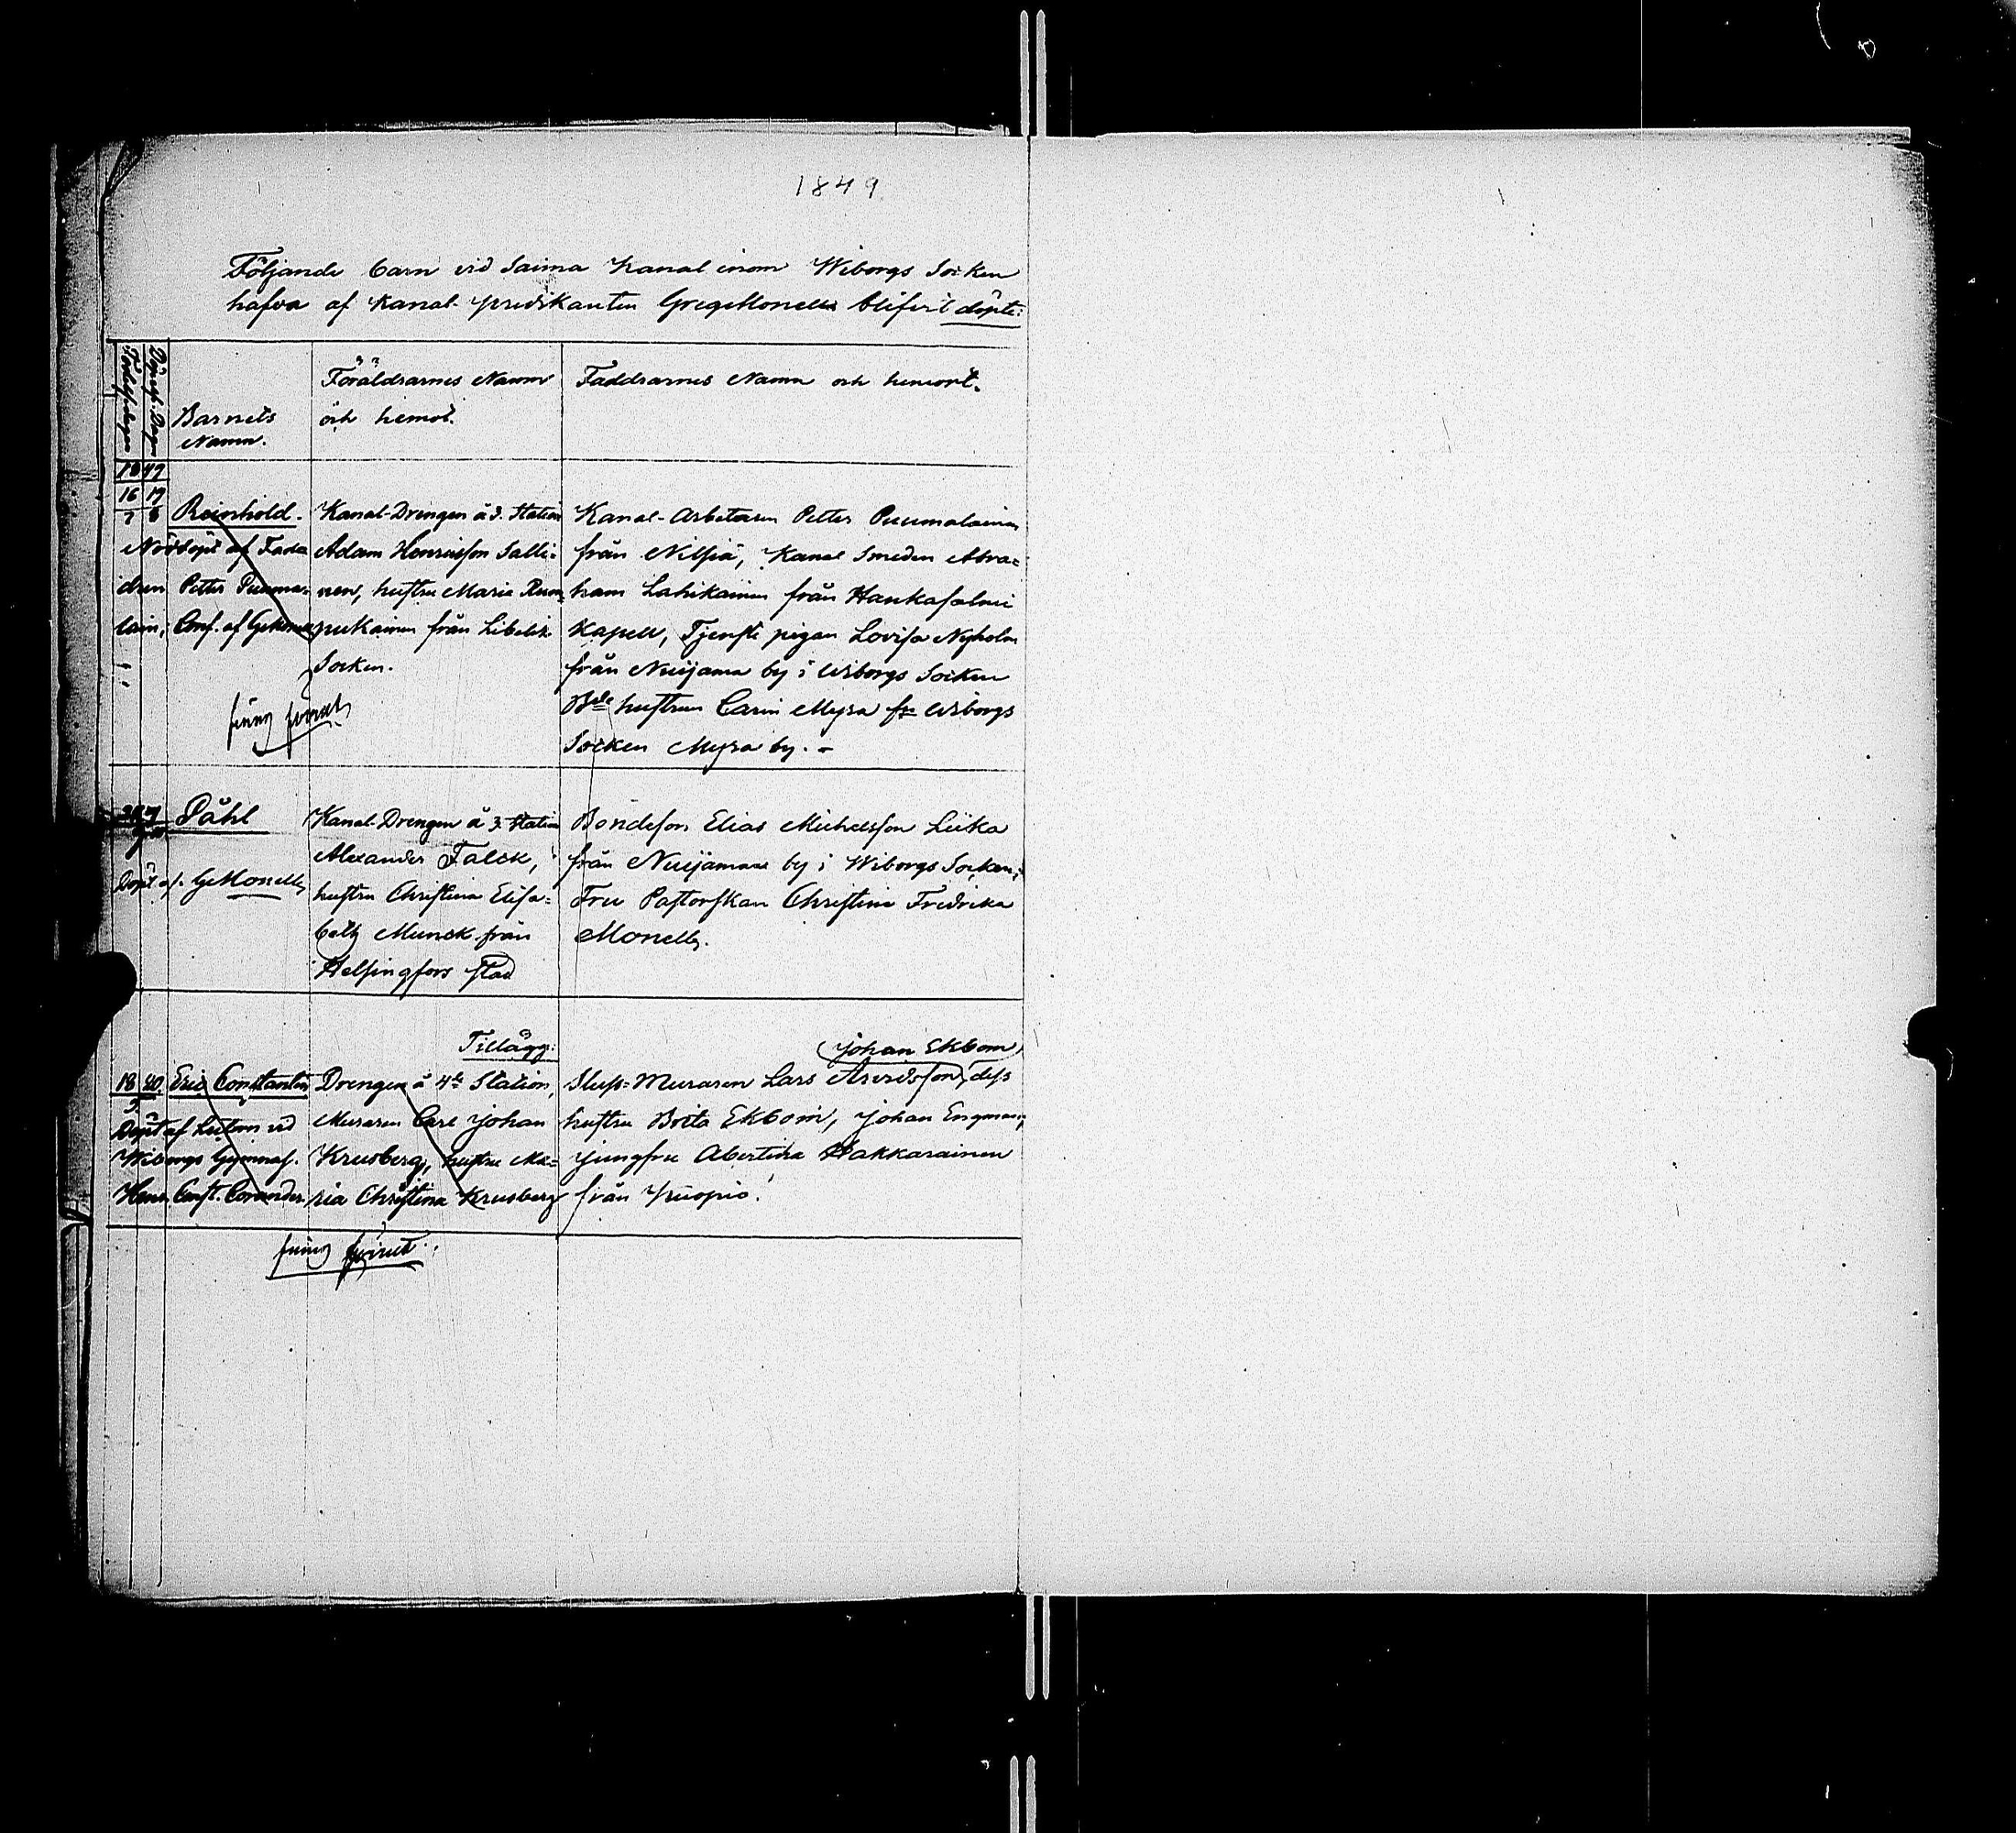 1849
Följande barn vid Saima Kanal inom Wiborgs Socken
hafva af Kanal-predikanten Greg Monell blifvit döpte:
Barnets
Namn.
Föräldrarnes Namn
och hemort.
Faddrarnes Namn och hemort.
1849
16 17
7 8
Reinhold.
Nöddöpt af Fadd
dren Petter Puuma=
lain; Conf. af GMonell
Kanal-Drengen å 3. Station
Adam Henricsson Salli=
nen, hustru Maria Rum=
pukainen från Libelits
Socken.
Kanal-Arbetaren Petter Puumalainen
från Nilsiä, Kanal Smeden Abra=
ham Lahikainen från Hankasalmi
Kapell, Tjenste pigan Lovisa Nyholm
från Nuijama by i Wiborgs Socken
Bde hustrun Carin Myra fr Wiborgs
Socken Myra by. -
Påhl
Döpt af. GMonell
Kanal-Drengen å 3. Station
Alexander Falck,
hustru Christina Elisa=
beth Munck från
Helsingfors stad
Bondeson Elias Michelsson Liika
från Nuijamaa by i Wiborgs Socken;
Fru Pastorskan Christina Fredrika
Monell.
Tillägg:
18 20
Eric Constantin
Döpt af Lectorn vid
Wiborgs Gymnas.
Henr. Const. Corander.
Drengen å 4de Station,
Muraren Carl Johan
Krusberg, hustru Ma=
ria Christina Krusberg
Johan Ekbom
Slups=Muraren Lars Arvidsson, dess
hustru Brita Ekbom, Johan Engman,
jungfru Abertina Hakkarainen
från Kuopio.